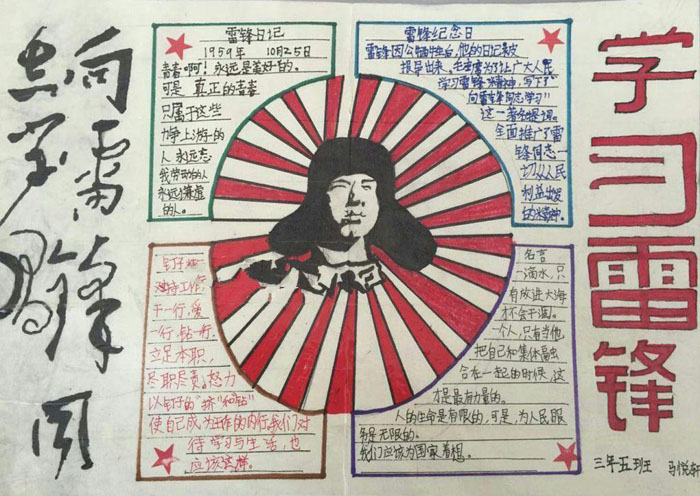 向雷锋同
志学习
雷锋日记
1959年 10月25日
青春啊！永远是美好的。
可是 真正的青春
只属于这些
力争上游的
人 永远忘
我劳动的人
永远谦虚
的人。
雷锋纪念日
雷锋因公牺牲后，他的日记被
报导出来，毛主席为了让广大人民
学习雷锋精神，写下了“
向雷锋同志学习”
这一著名题词。
全面推广了雷
锋同志一
切从人民
利益出发
的精神。
钉子
对待工作，
干一行，爱
一行，钻一行，
立足本职，
尽职尽责，努力
以钉子的“挤”和“钻”
使自己成为工作的内行，我们对
待学习与生活，也
应该这样。
名言
一滴水，只
有放进大海
才不会干涸。
一个人，只有当他
把自己和集体
合在一起的时候，这
才是最有力量的。
人的生命是有限的，可是，为人民服
务是无限的。
我们应该为国家着想。
学习雷锋
三年五班 马悦轩